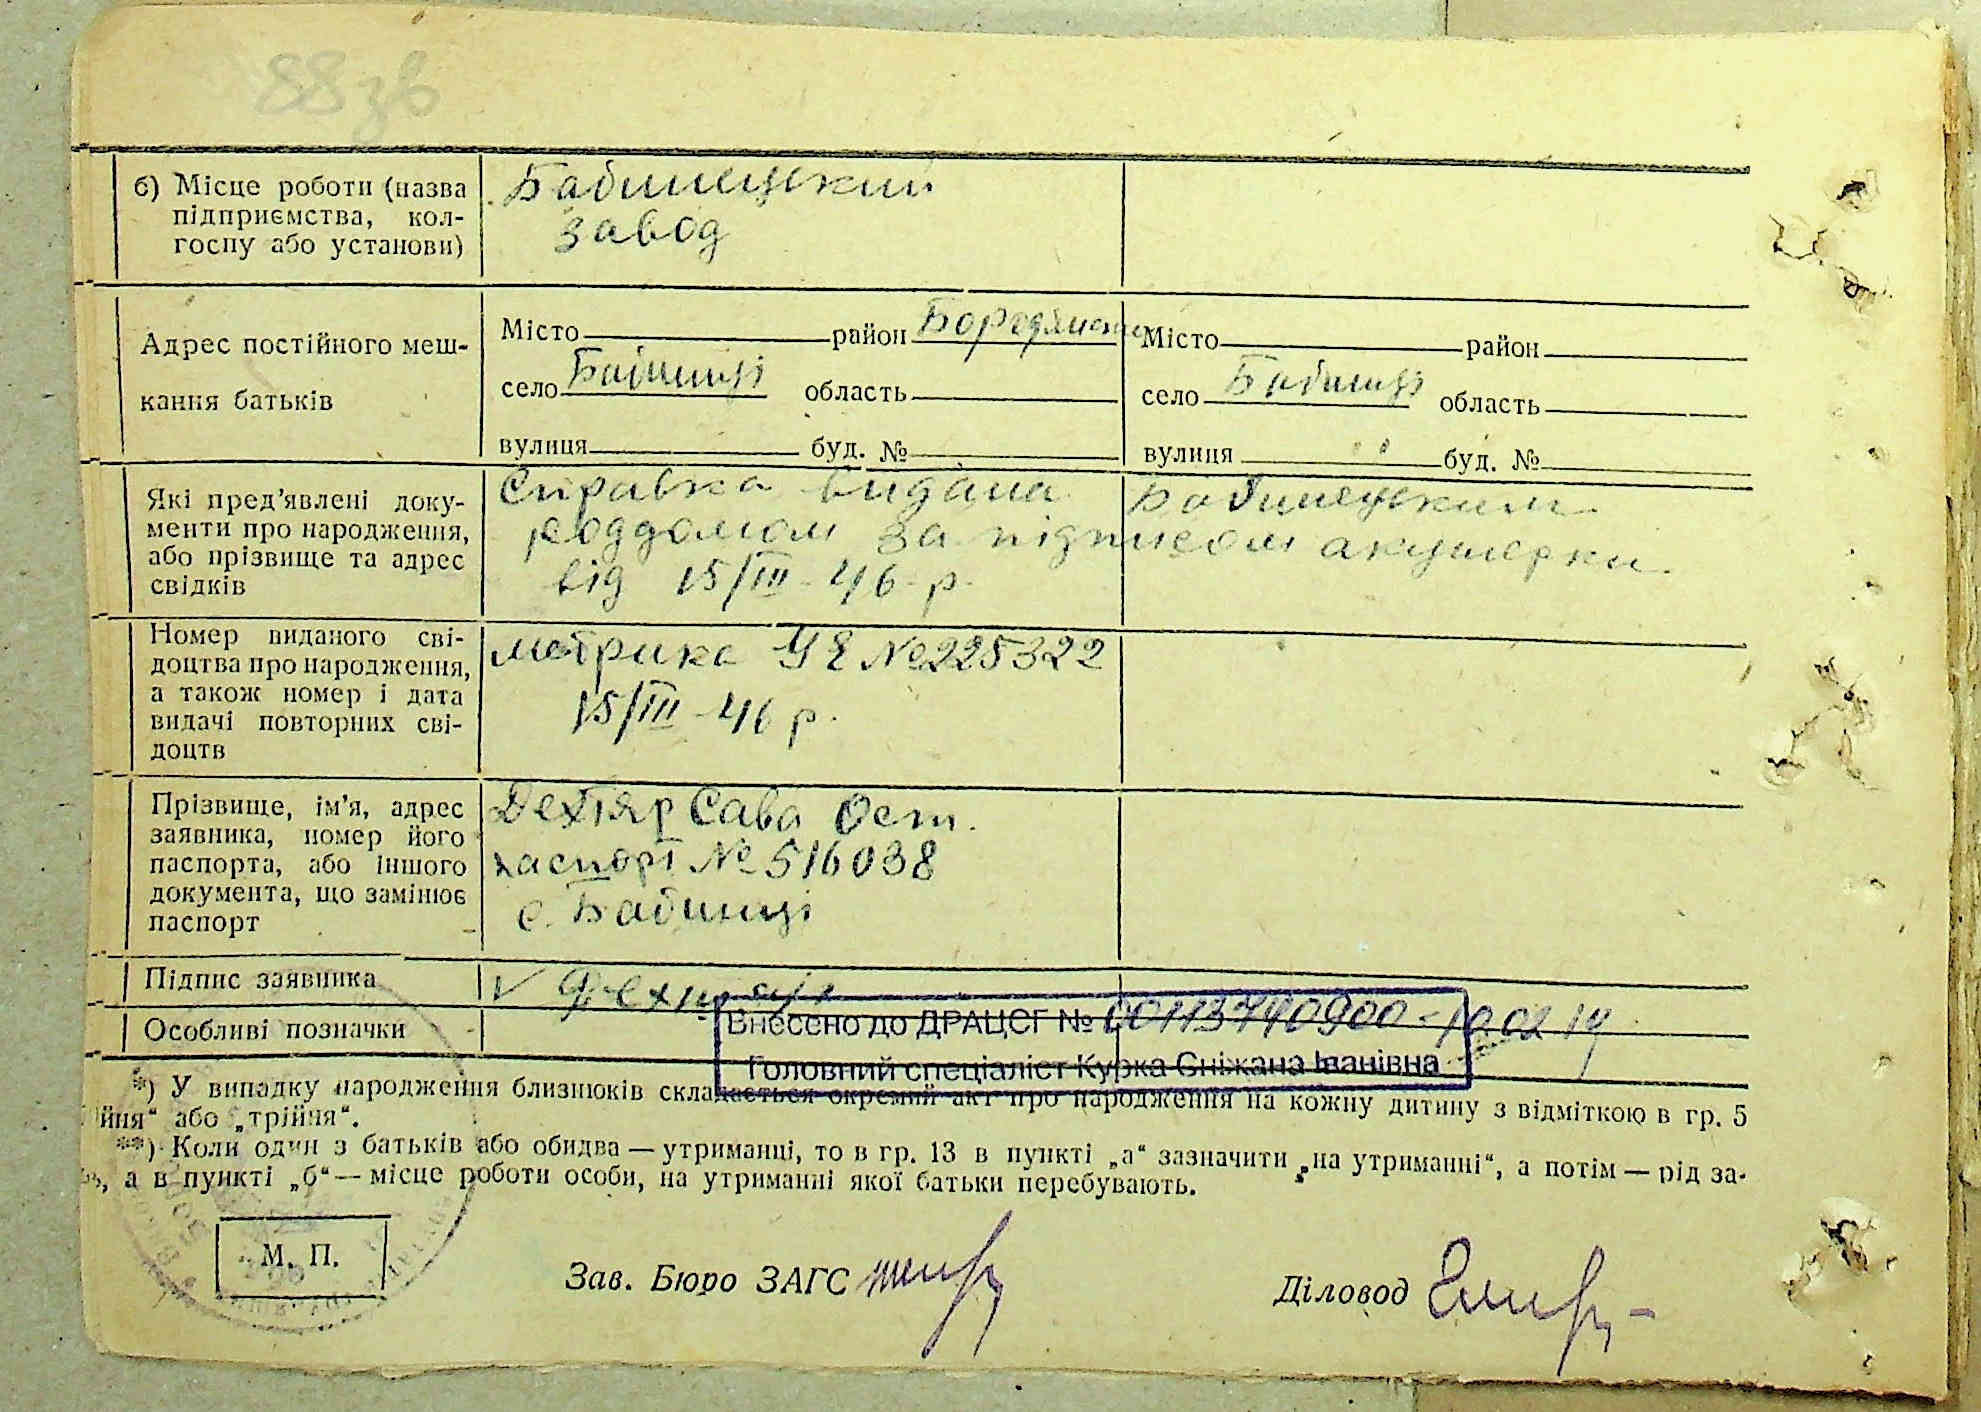 88 зв
б) Місце роботи (назва
підприємства, кол-
госпу або установи)
Бабинецький
завод
Адрес постійного меш-
кання батьків
Місто район Бородянськ Місто район
село Бабинці область село Бабинці область
вулиця буд. № вулиця буд. №
Які пред'явлені доку-
менти про народження,
або прізвище та адрес
свідків
Справка видана Бабинецьким
роддомом за підписом акушерки
від 15/III-46 р.
Номер виданого сві-
доцтва про народження,
а також номер і дата
видачі повторних сві-
доцтв
метрика УЕ №225322
15/III-46 р.
Прізвище, ім'я, адрес
заявника, номер його
паспорта, або іншого
документа, що замінює
паспорт
Дехтяр Сава Ост.
паспорт № 516038
с. Бабинці
Підпис заявника
V Дехтяр
Особливі позначки
Внесено до ДРАЦСГ № 00113740900 - 10.02.14
Головний спеціаліст Курка Сніжана Іванівна
*) У випадку народження близнюків складається окремий акт про народження на кожну дитину з відміткою в гр. 5
йня“ або „трійня“.
**) Коли один з батьків або обидва — утриманці, то в гр. 13 в пункті „а“ зазначити „на утриманні“, а потім — рід за-
, а в пункті „б“ — місце роботи особи, на утриманні якої батьки перебувають.
М. П.
Зав. Бюро ЗАГС
Діловод